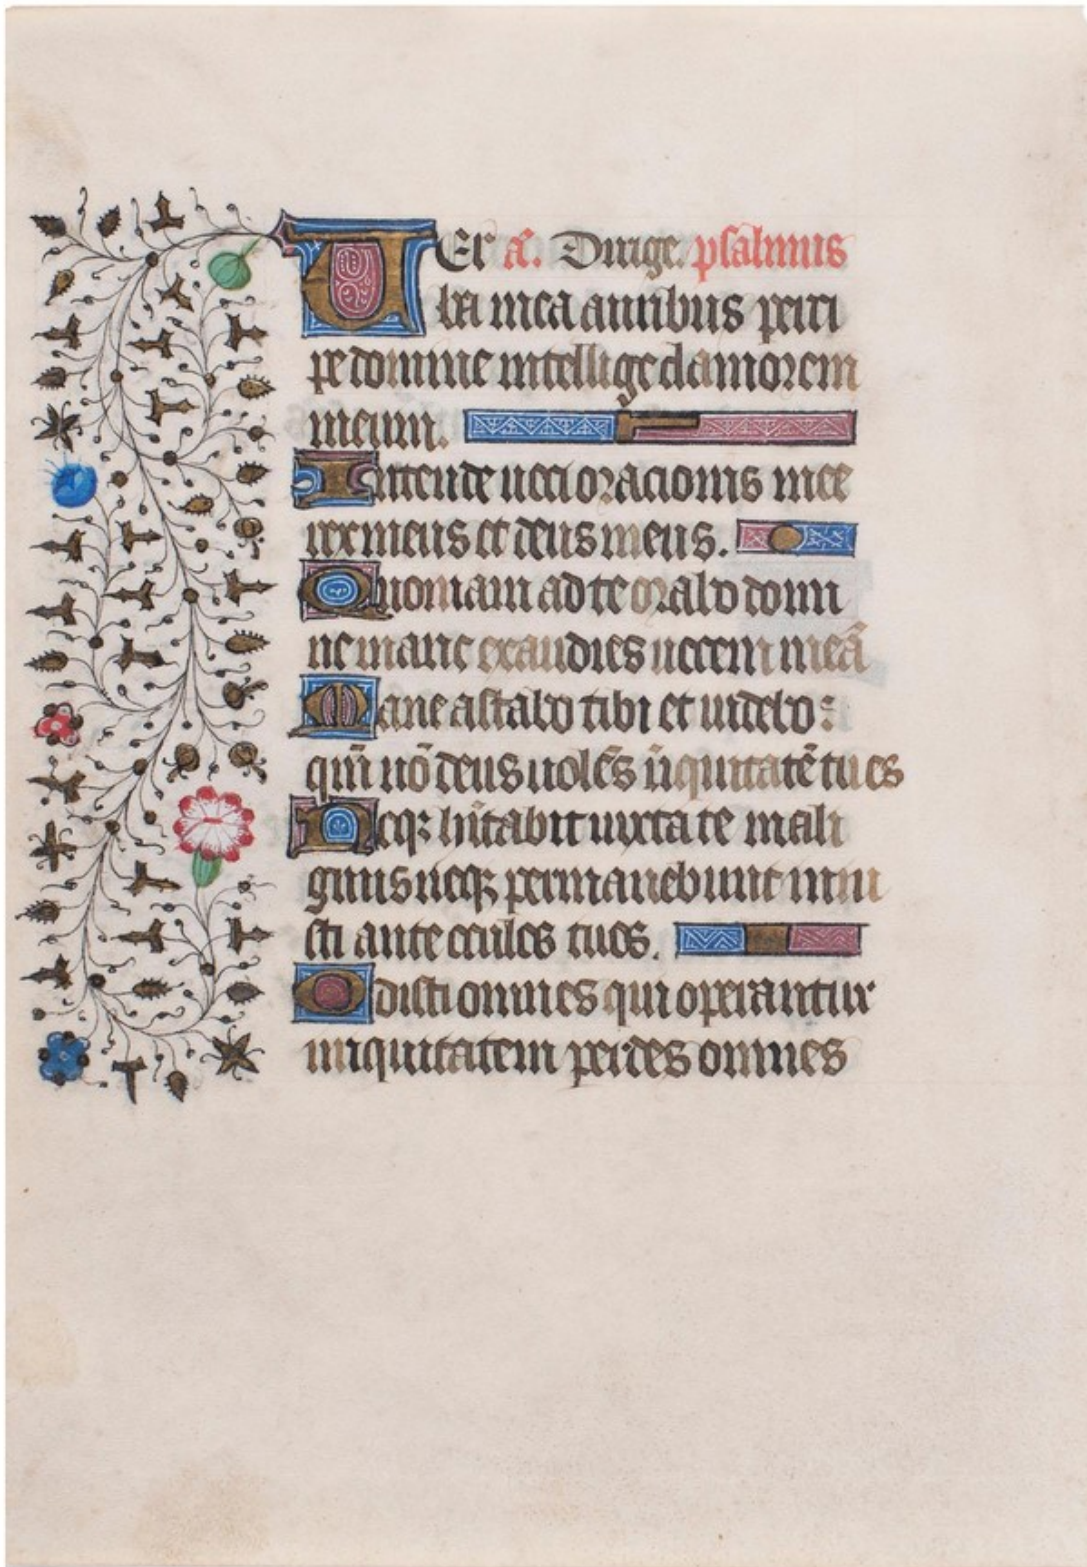 VEr añ. Dirige. psalmus
ba mea auribus perci
pe domine intellige clamorem
meum.
Intende uoci oracionis mee
rex meus et deus meus.
Quoniam ad te orabo domi
ne mane exaudies uocem meā
Mane astabo tibi et uidebo:
qm̄ nō deus uolēs iiquitatē tu es
Neqꝫ hītabit iuxta te mali
gnus neqꝫ permanebunt iniu
sti ante oculos tuos.
Odisti omnes qui operantur
iniquitatem perdes omnes